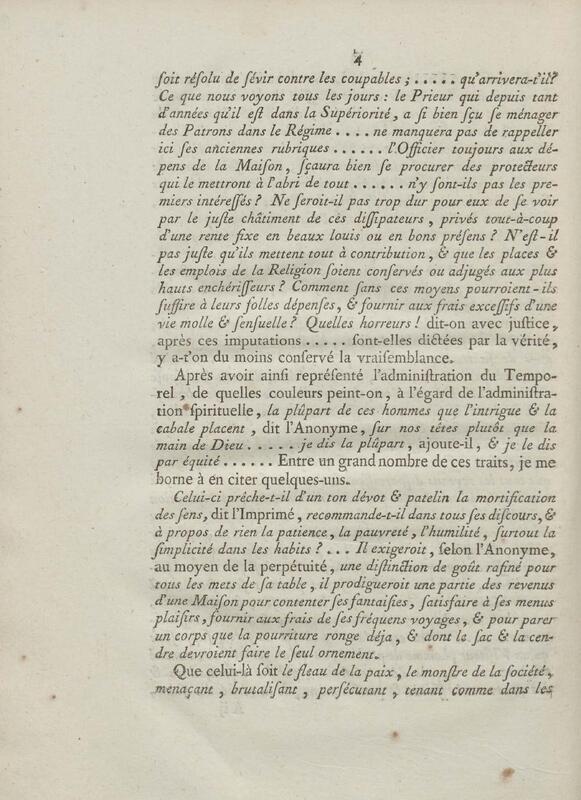 4
ſoit réſolu de ſévir contre les coupables ; ..... qu'arrivera-t'il?
Ce que nous voyons tous les jours : le Prieur qui depuis tant
d'années qu'il eſt dans la Supériorité, a ſi bien ſçu ſe ménager
des Patrons dans le Régime .... ne manquera pas de rappeller
ici ſes anciennes rubriques ...... l'Officier toujours aux dé-
pens de la Maiſon, ſçaura bien ſe procurer des protecteurs
qui le mettront à l'abri de tout ...... n'y ſont-ils pas les pre-
miers intéreſſés ? Ne ſeroit-il pas trop dur pour eux de ſe voir
par le juſte châtiment de ces diſſipateurs, privés tout-à-coup
d'une rente fixe en beaux louis ou en bons préſens ? N'eſt-il
pas juſte qu'ils mettent tout à contribution, & que les places &
les emplois de la Religion ſoient conſervés ou adjugés aux plus
hauts enchériſſeurs ? Comment ſans ces moyens pourroient-ils
ſuffire à leurs folles dépenſes, & fournir aux frais exceſſifs d'une
vie molle & ſenſuelle ? Quelles horreurs ! dit-on avec juſtice,
après ces imputations ..... ſont-elles dictées par la vérité,
y a-t'on du moins conſervé la vraiſemblance.
Après avoir ainſi repréſenté l'adminiſtration du Tempo-
rel, de quelles couleurs peint-on, à l'égard de l'adminiſtra-
tion ſpirituelle, la plûpart de ces hommes que l'intrigue & la
cabale placent, dit l'Anonyme, ſur nos têtes plutôt que la
main de Dieu ..... je dis la plûpart, ajoute-il, & je le dis
par équité ...... Entre un grand nombre de ces traits, je me
borne à en citer quelques-uns.
Celui-ci préche-t-il d'un ton dévot & patelin la mortification
des ſens, dit l'Imprimé, recommande-t-il dans tous ſes diſcours, &
à propos de rien la patience, la pauvreté, l'humilité, ſurtout la
ſimplicité dans les habits ? ... Il exigeroit, ſelon l'Anonyme,
au moyen de la perpétuité, une diſtinction de goût rafiné pour
tous les mets de ſa table, il prodigueroit une partie des revenus
d'une Maiſon pour contenter ſes fantaiſies, ſatisfaire à ſes menus
plaiſirs, fournir aux frais de ſes fréquens voyages, & pour parer
un corps que la pourriture ronge déja, & dont le ſac & la cen-
dre devroient faire le ſeul ornement.
Que celui-là ſoit le fleau de la paix, le monſtre de la ſociété,
menaçant, brutaliſant, perſécutant, tenant comme dans les